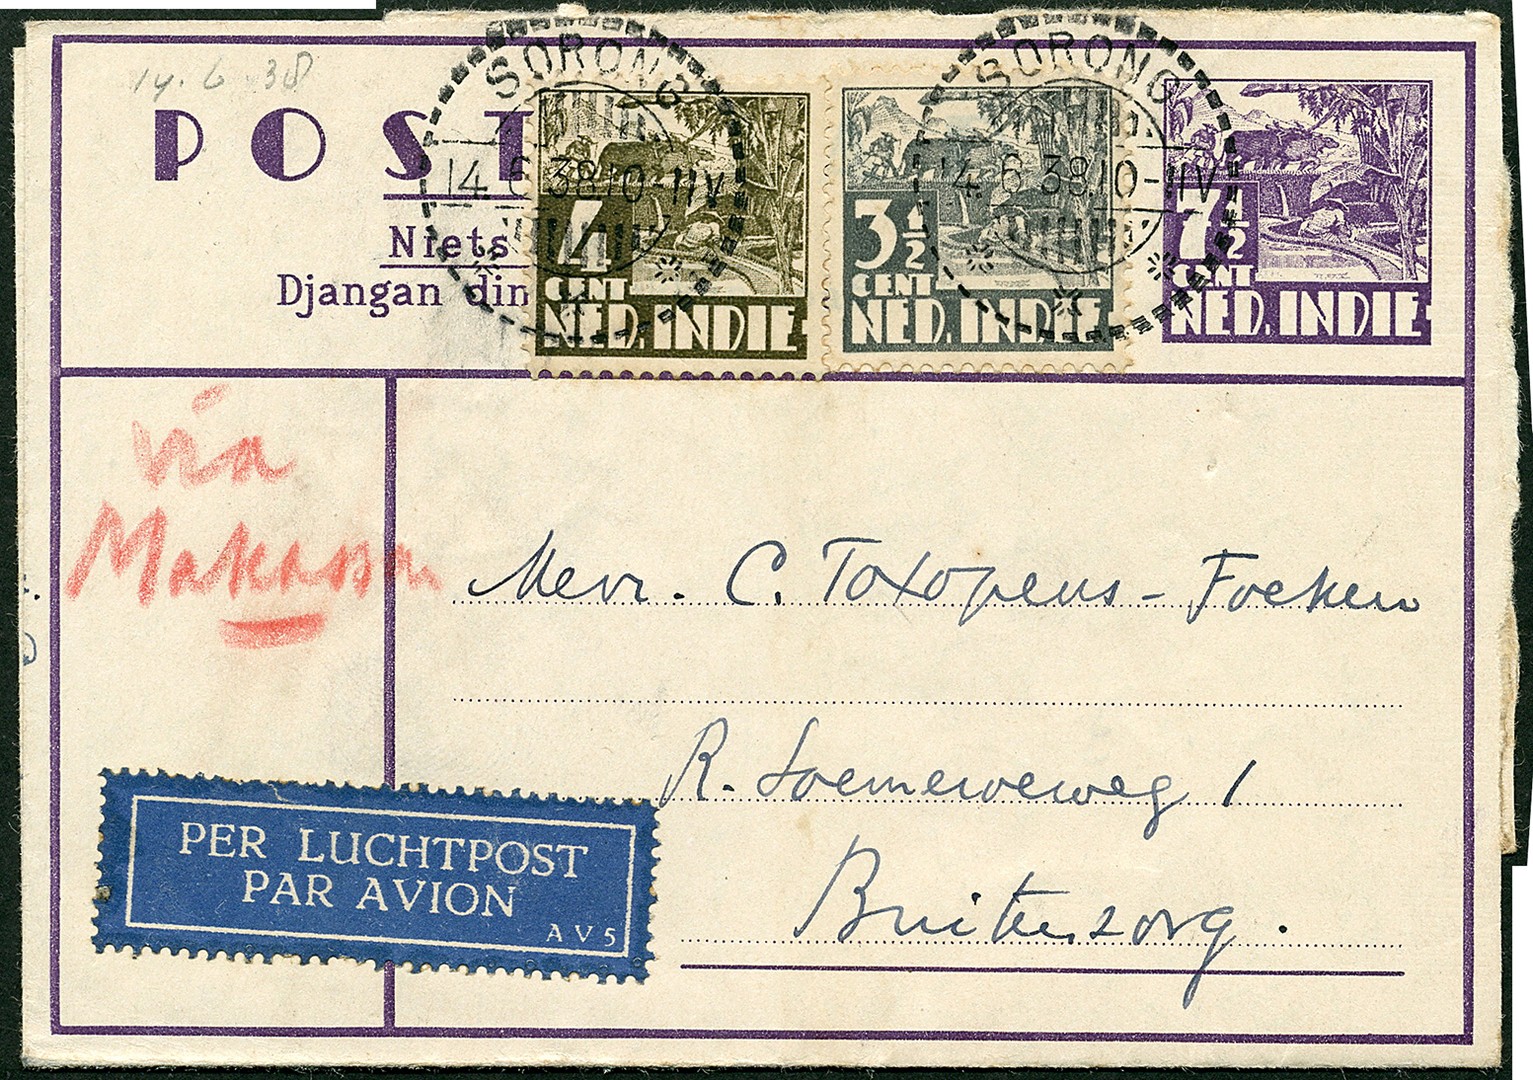 14.6.38
POST
Niets
Djangan din
SORONG
14.6.38 10-11V
SORONG
14.6.38 10-11V
4
CENT
NED. INDIE
3½
CENT
NED. INDIE
7½
CENT
NED. INDIE
via
Makassar
Mevr. C. Toxopeus-Focken
R. Soemeroeweg 1
Buitenzorg.
PER LUCHTPOST
PAR AVION
AV5